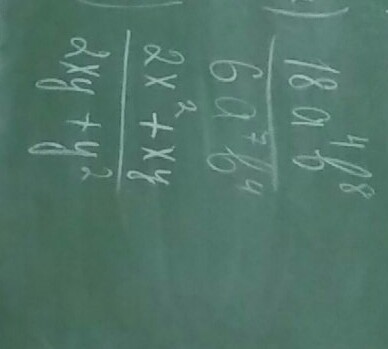 18a⁴b⁸
6a⁷b⁴
2x² + xy
2xy + y²